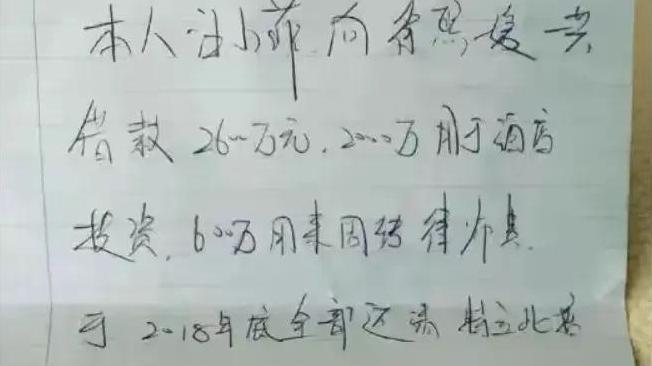 本人汪小菲向徐熙媛共
借款2600万元,2000万用于酒店
投资,600万用来周转律师费
于2018年底全部还清 特立此据